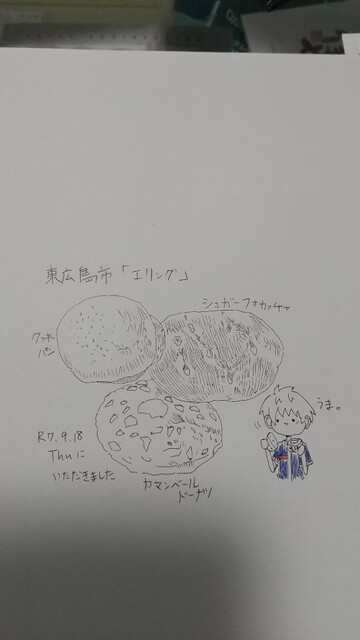 東広島市「エリング」
シュガーフォカッチャ
クッキー
パン
うま。
R7.9.18
Thuに
いただきました
カマンベール
ドーナツ